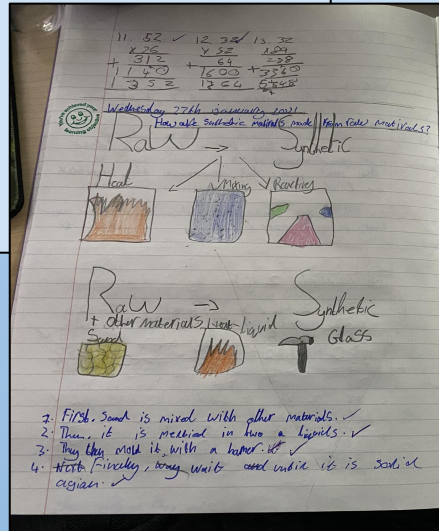 11. 52 ✓ 12. 32 ✓ 13. 32
x 26 x 52
+ 312 + 64
1 1 4 0 1600 + 3360
1 3 5 2 1 7 6 4
You've achieved your learning objective
Wednesday 27th January 2021
How are Synthetic materials made from raw materials?
Raw → Synthetic
Heat Mixing Reacting
Raw → Synthetic
+ other materials Heat Liquid Glass
Sand
1. First, Sand is mixed with other materials. ✓
2. Then, it is meltind in two a liquids. ✓
3. They mold it with a hamer. ✓
4. Finaley, wait untill it is soalid
agian. ✓